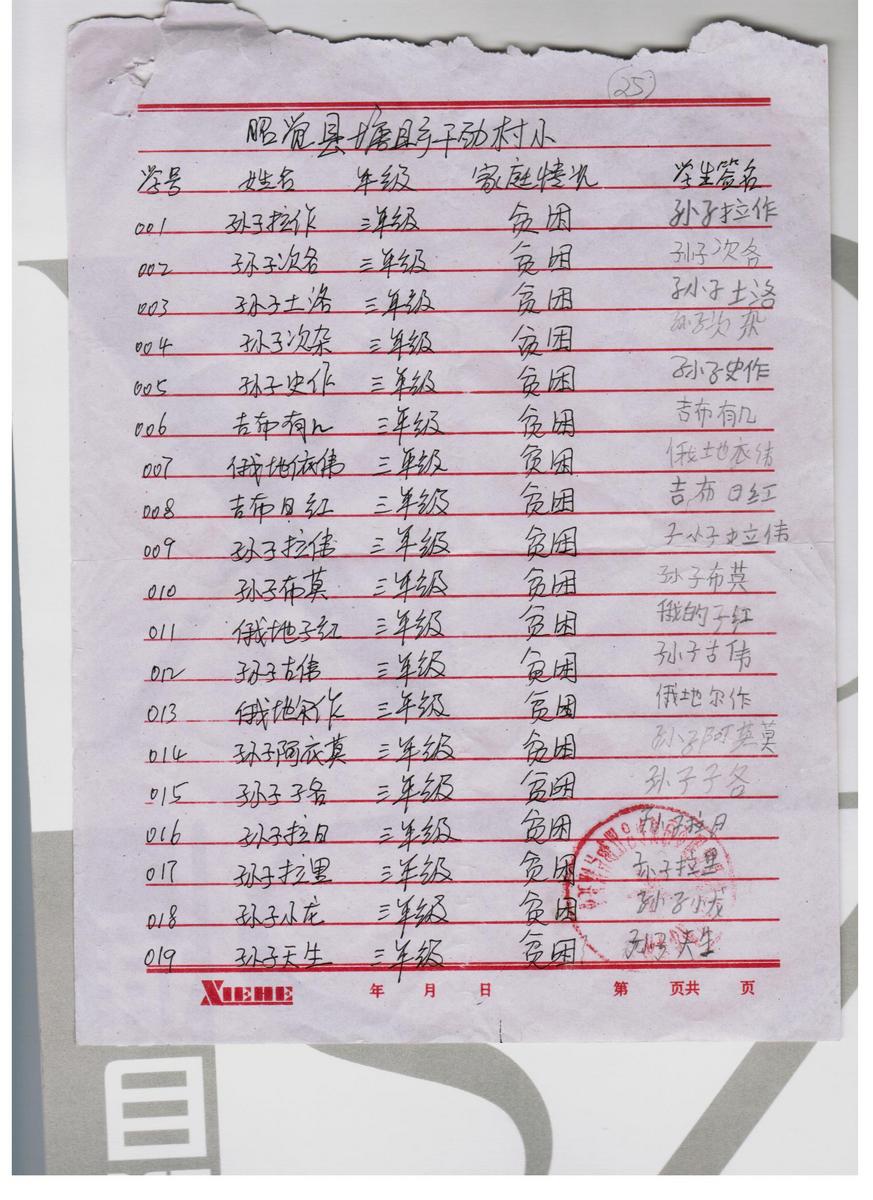 25
昭觉县塘且乡干劲村小
学号 姓名 年级 家庭情况 学生签名
001 孙子拉作 三年级 贫困 孙子拉作
002 孙子次各 三年级 贫困 孙子次各
003 孙子土洛 三年级 贫困 孙子土洛
004 孙子次杂 三年级 贫困 孙子次杂
005 孙子史作 三年级 贫困 孙子史作
006 吉布有几 三年级 贫困 吉布有几
007 俄地依伟 三年级 贫困 俄地衣伟
008 吉布日红 三年级 贫困 吉布日红
009 孙子拉伟 三年级 贫困 孙子拉伟
010 孙子布莫 三年级 贫困 孙子布莫
011 俄地子红 三年级 贫困 俄的子红
012 孙子古伟 三年级 贫困 孙子古伟
013 俄地尔作 三年级 贫困 俄地尔作
014 孙子阿衣莫 三年级 贫困 孙子阿莫
015 孙子子各 三年级 贫困 孙子子各
016 孙子拉日 三年级 贫困 孙子拉日
017 孙子拉里 三年级 贫困 孙子拉里
018 孙子小龙 三年级 贫困 孙子小龙
019 孙子天生 三年级 贫困 孙子天生
XIEHE 年 月 日 第 页共 页
目